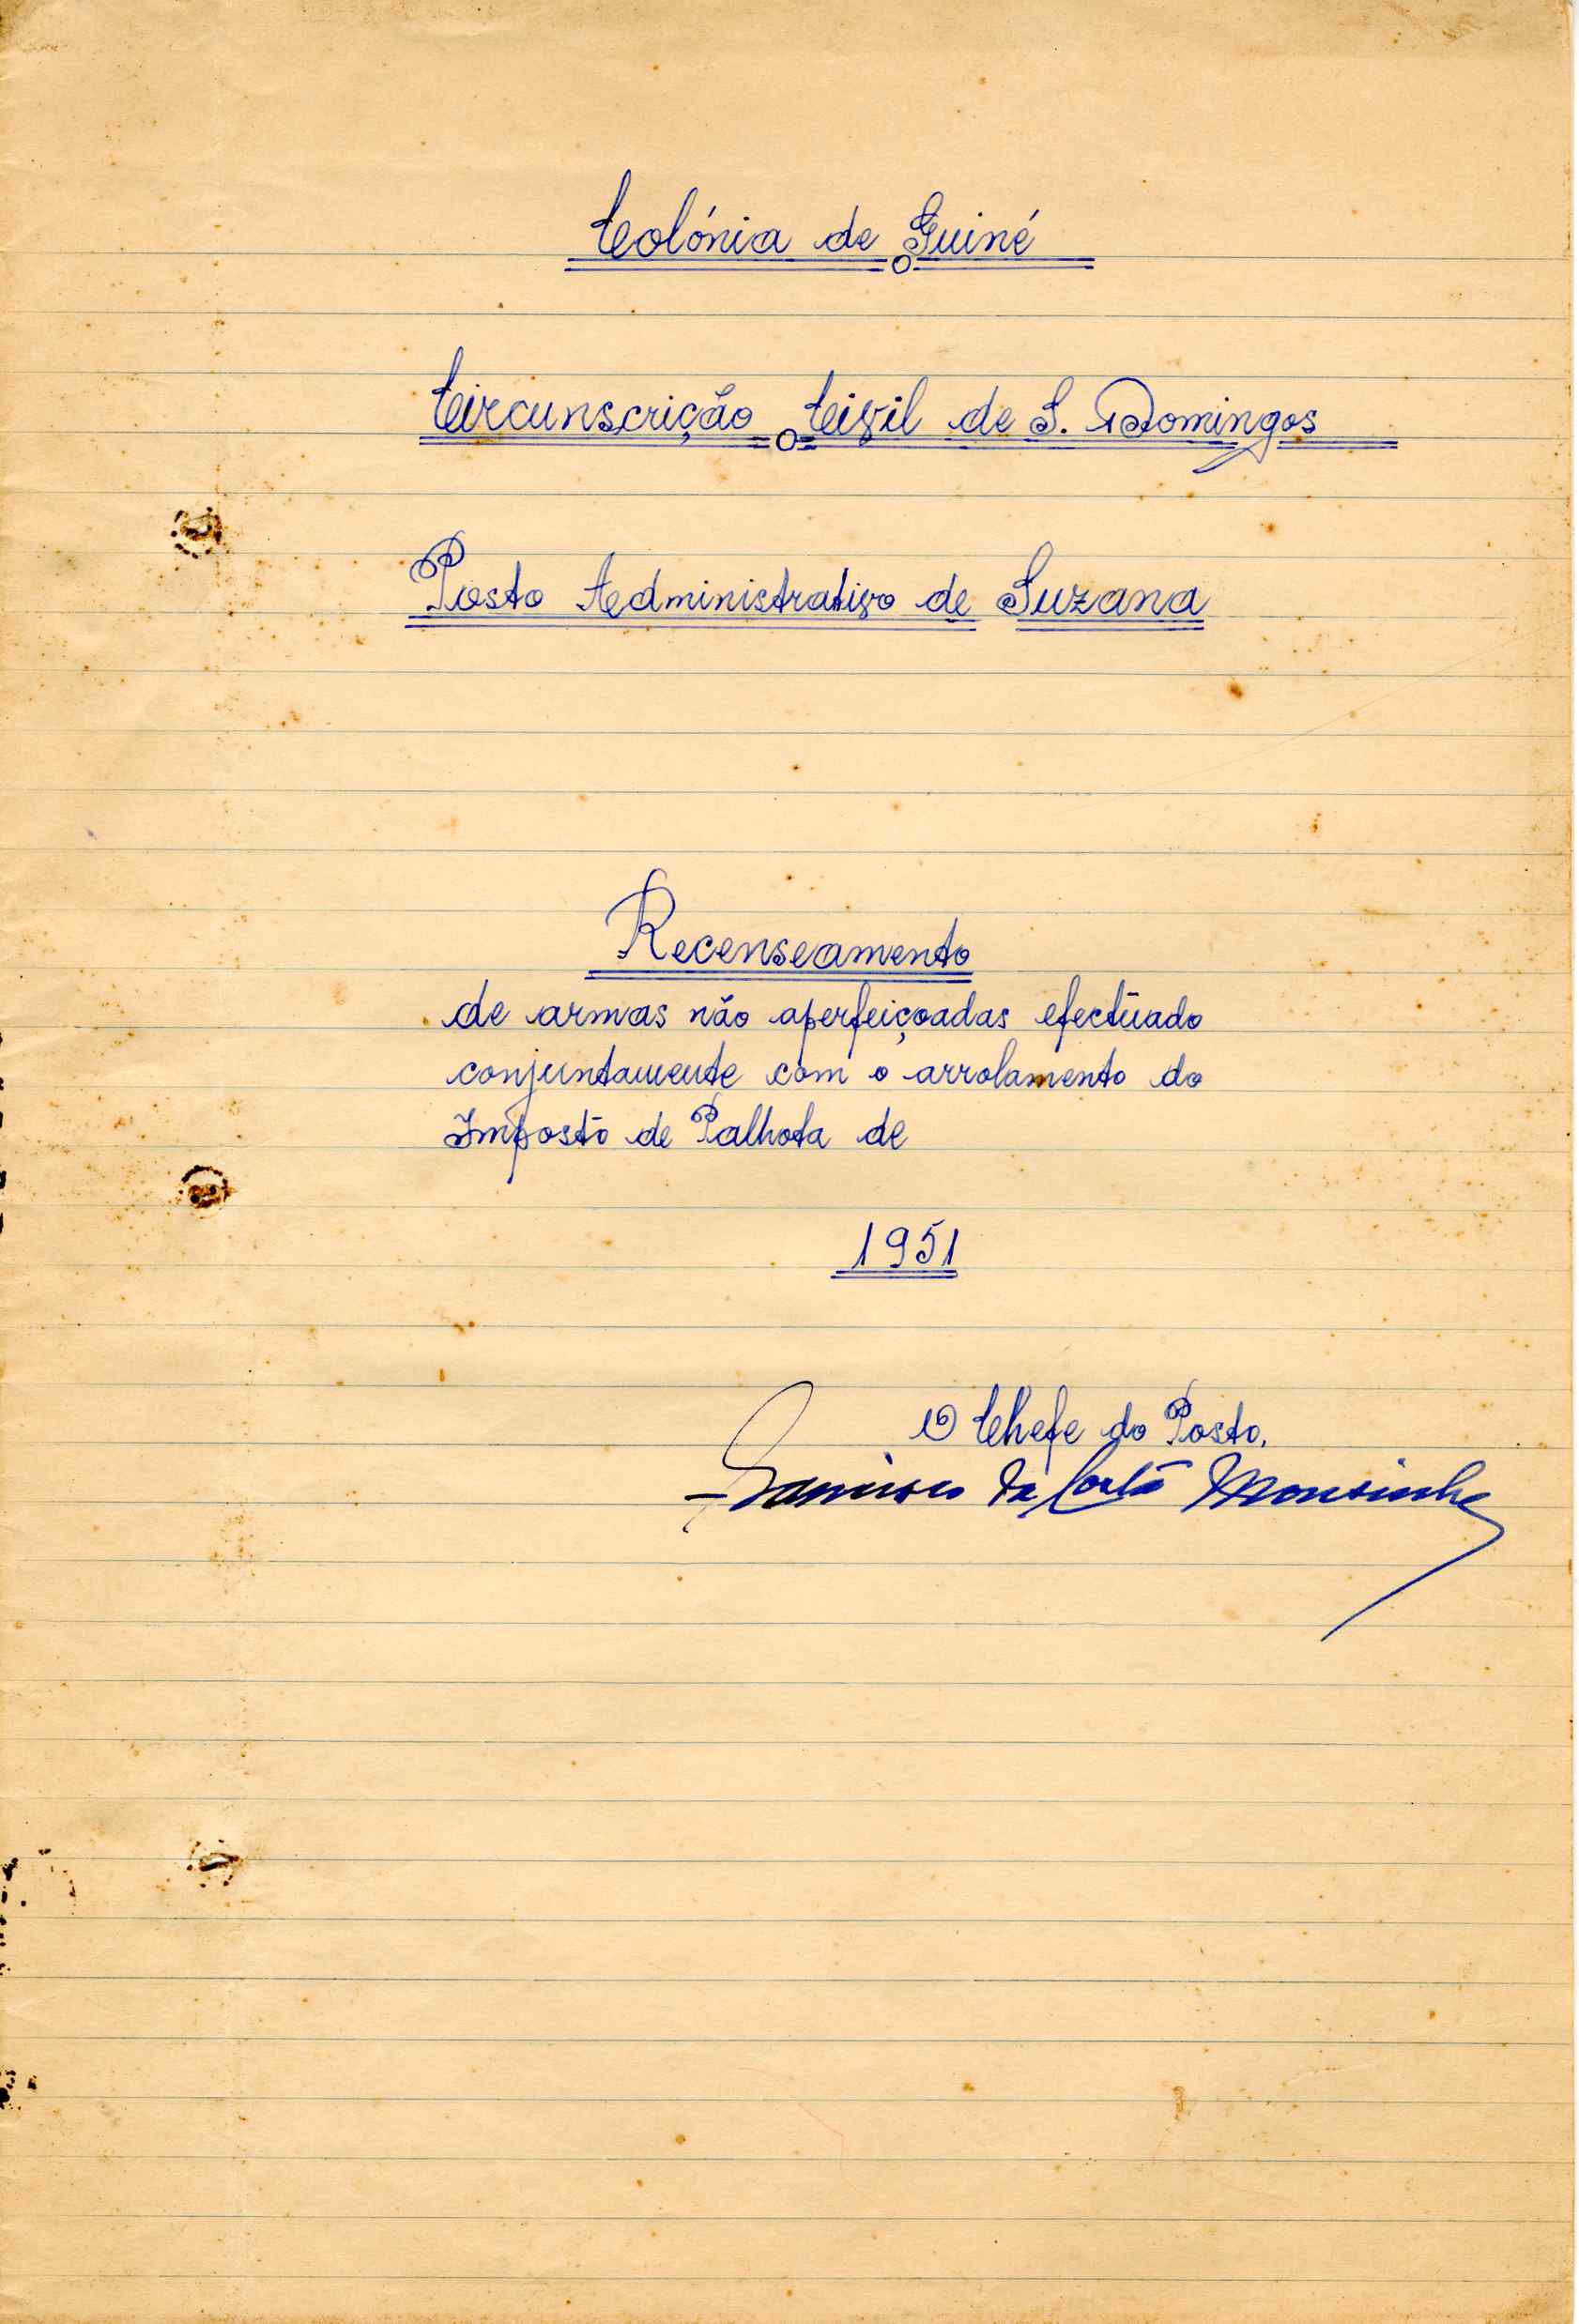 Colónia de Guiné
Circunscrição Civil de S. Domingos
Posto Administrativo de Suzana
Recenseamento
de armas não aperfeiçoadas efectuado
conjuntamente com o arrolamento do
Imposto de Palhota de
1951
O Chefe do Posto,
Francisco da Costa